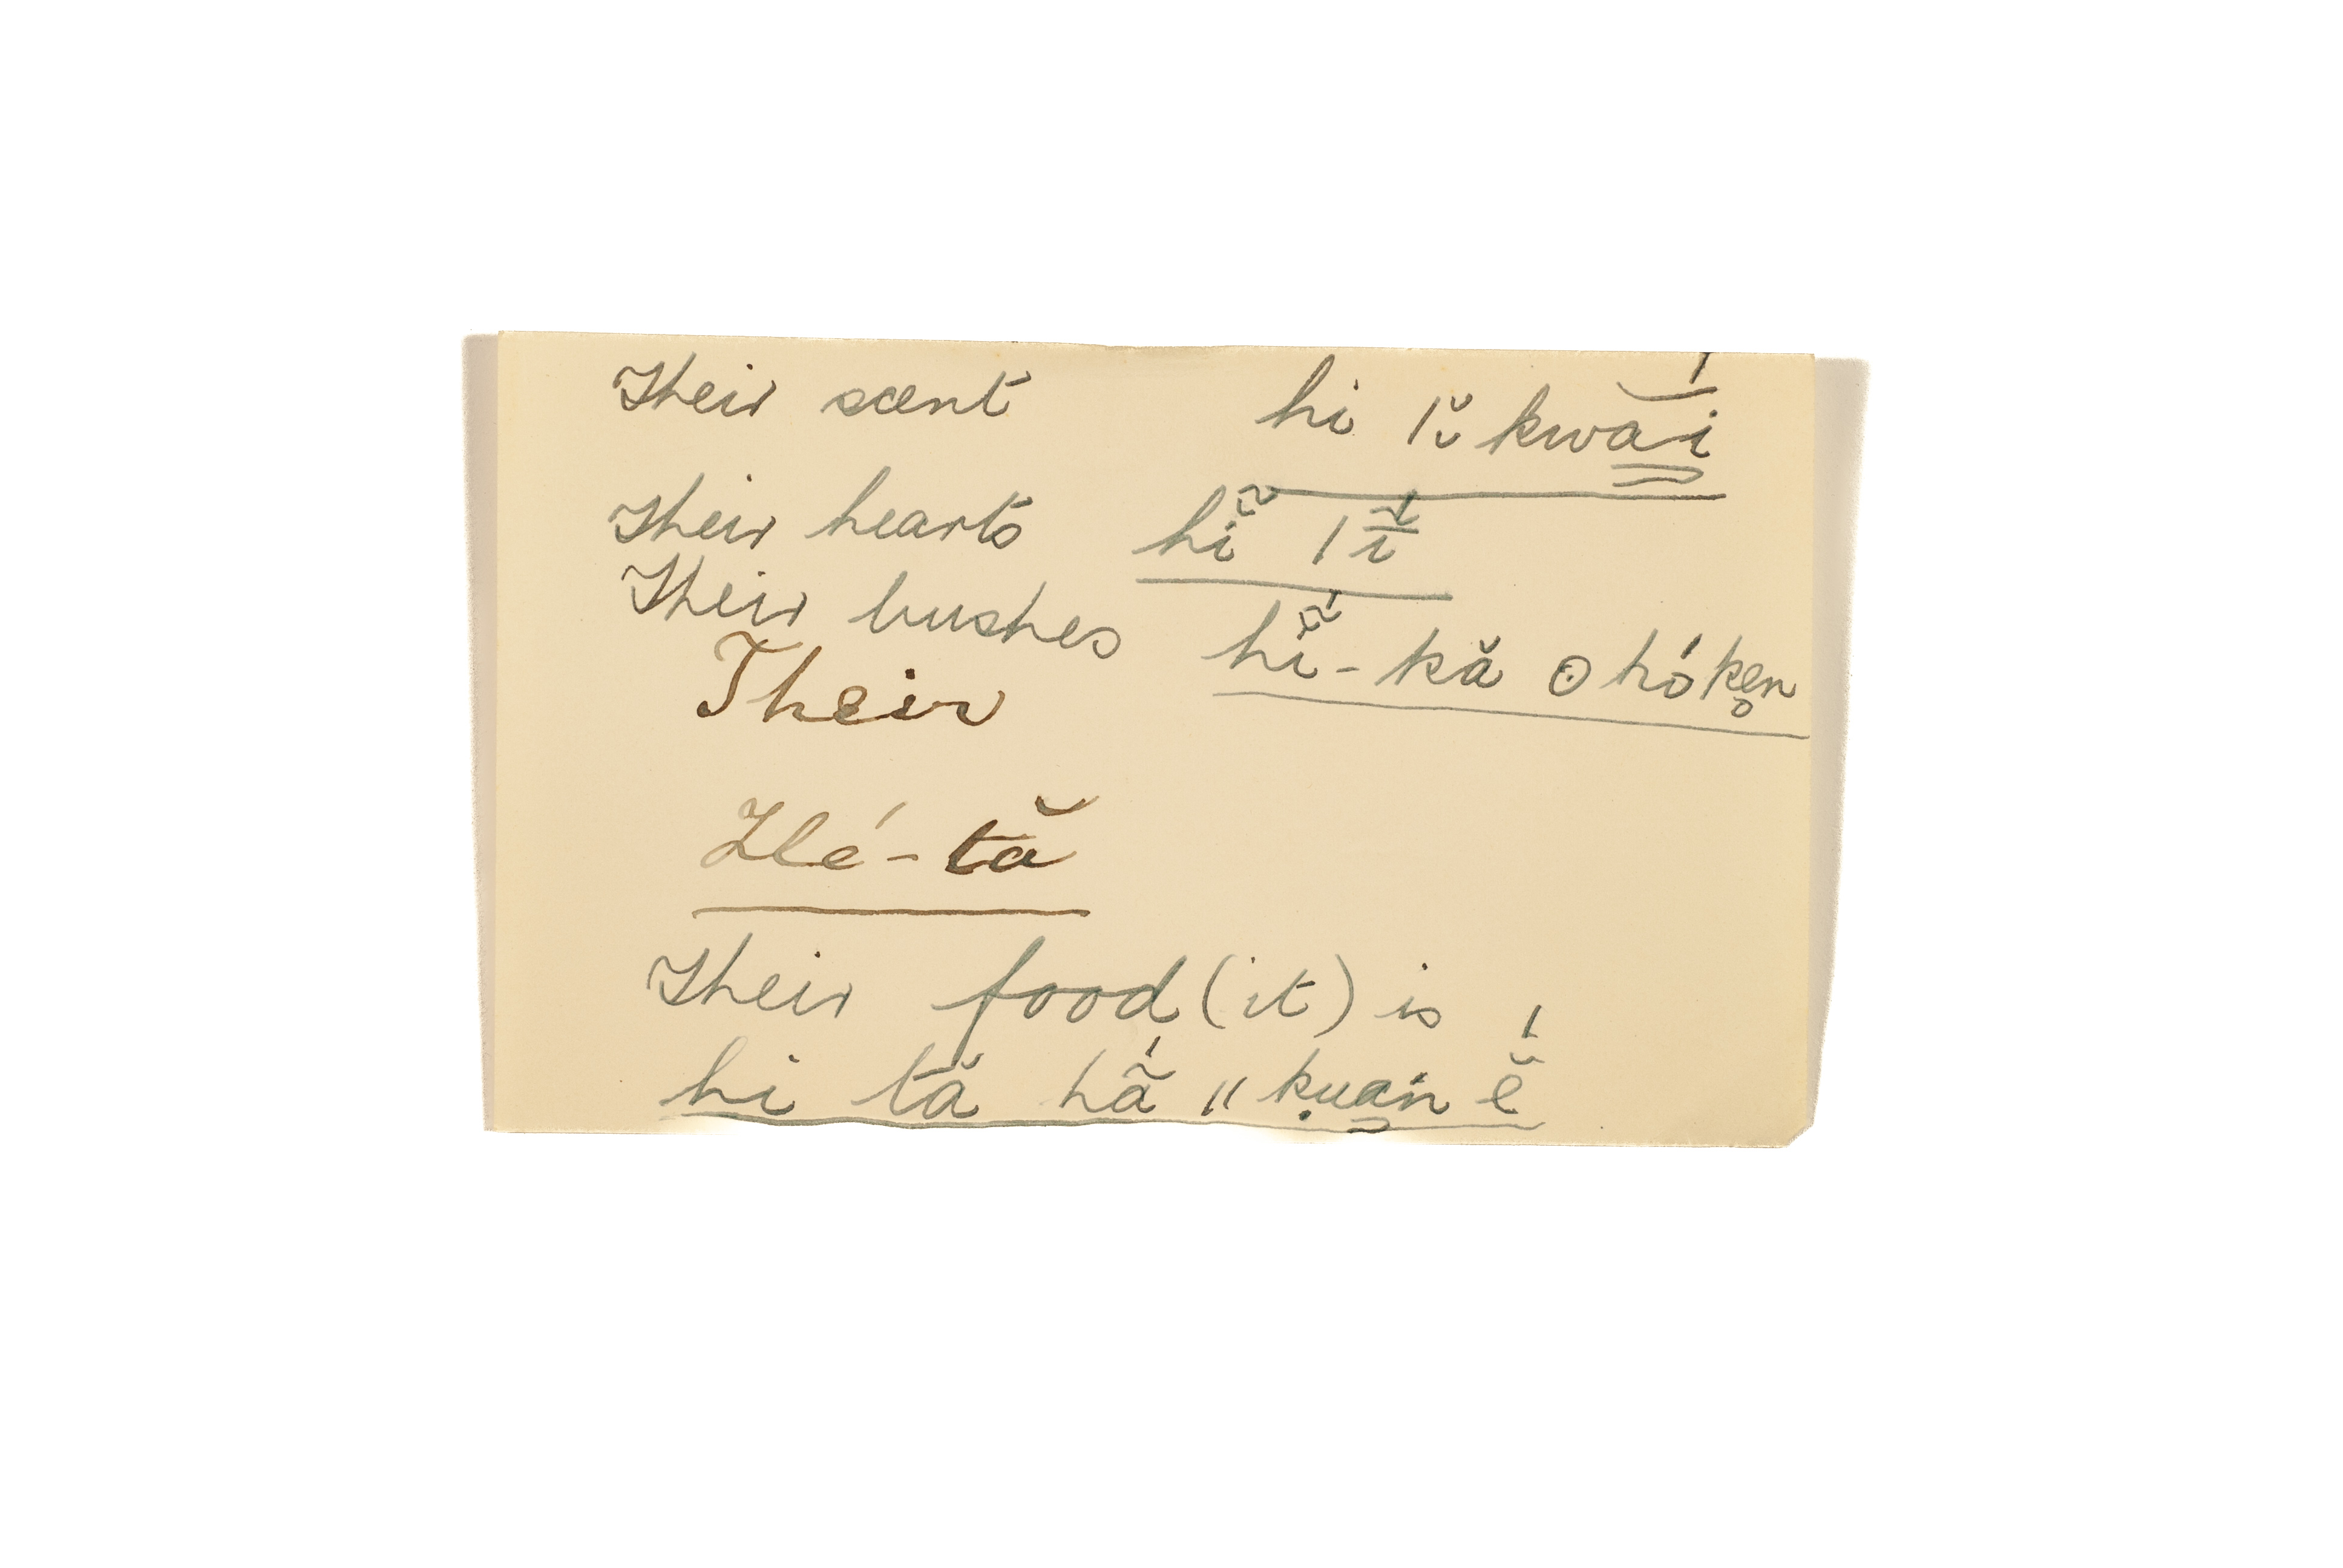 Their scent hi |ĭ kwā́i
Their hearts hĭ̃ |ī̃́
Their bushes hĭ̃́-kă ʘhóken̥
Their
Hé-tă
Their food (it) is
hi tă hã̆́ ǁkuań ĕ́